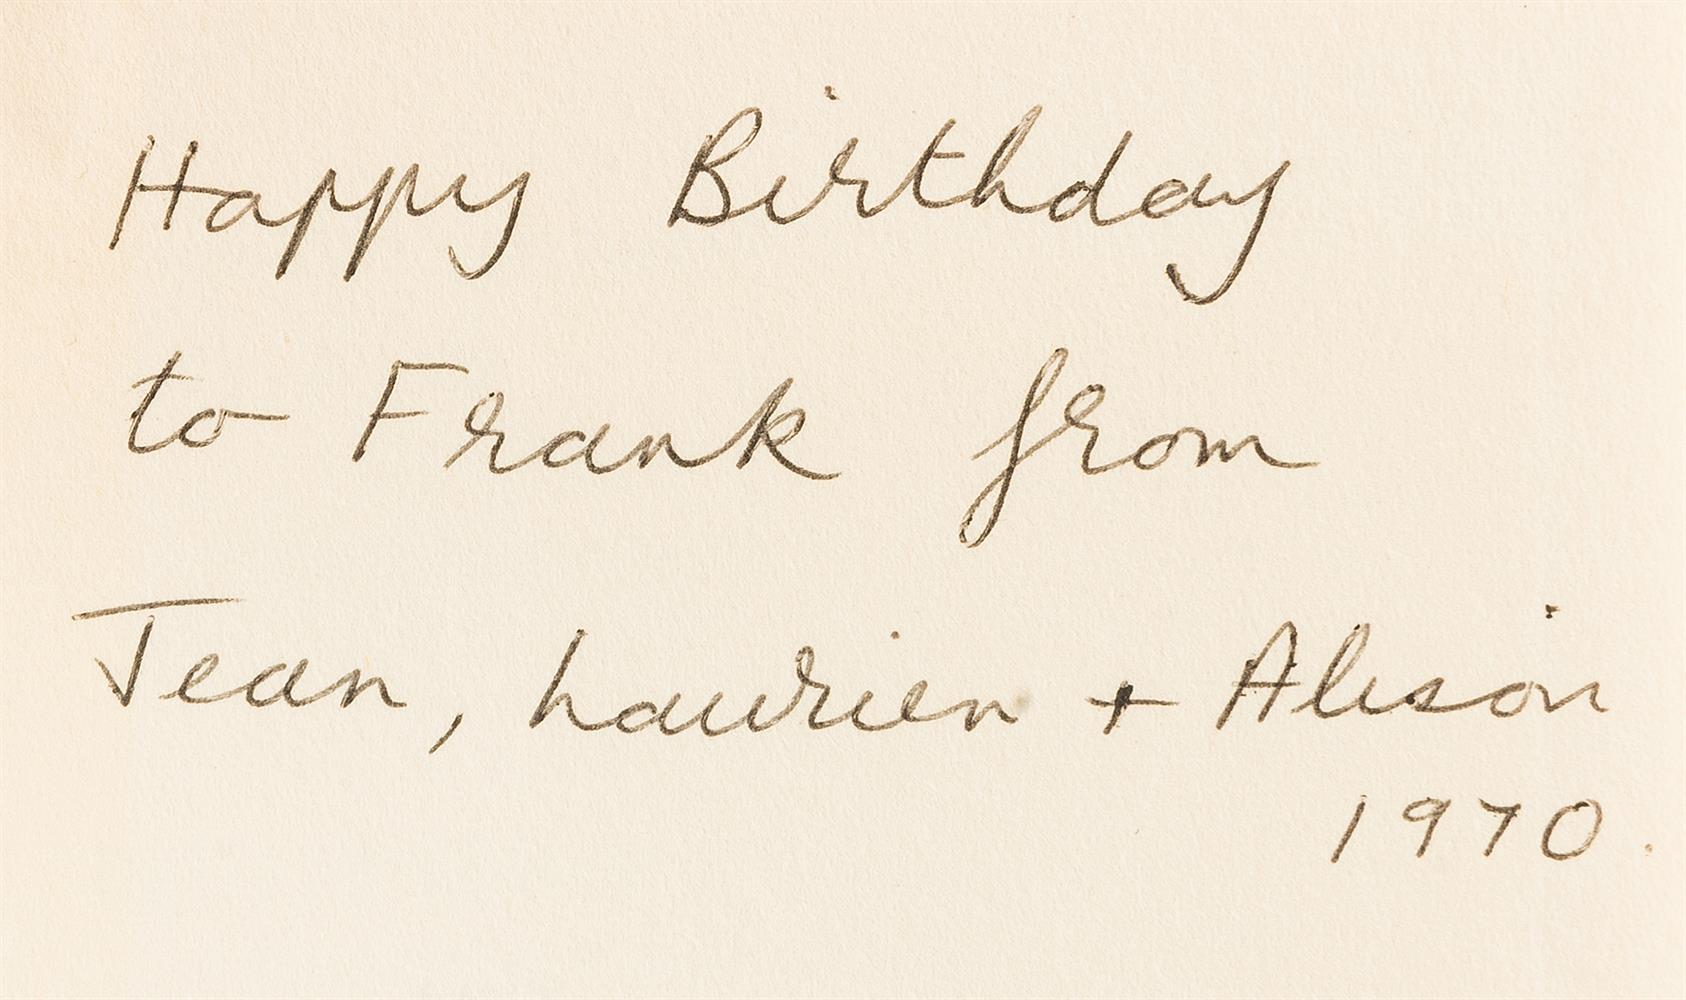 Happy Birthday
to Frank from
Jean, Laurien + Alison
1970.